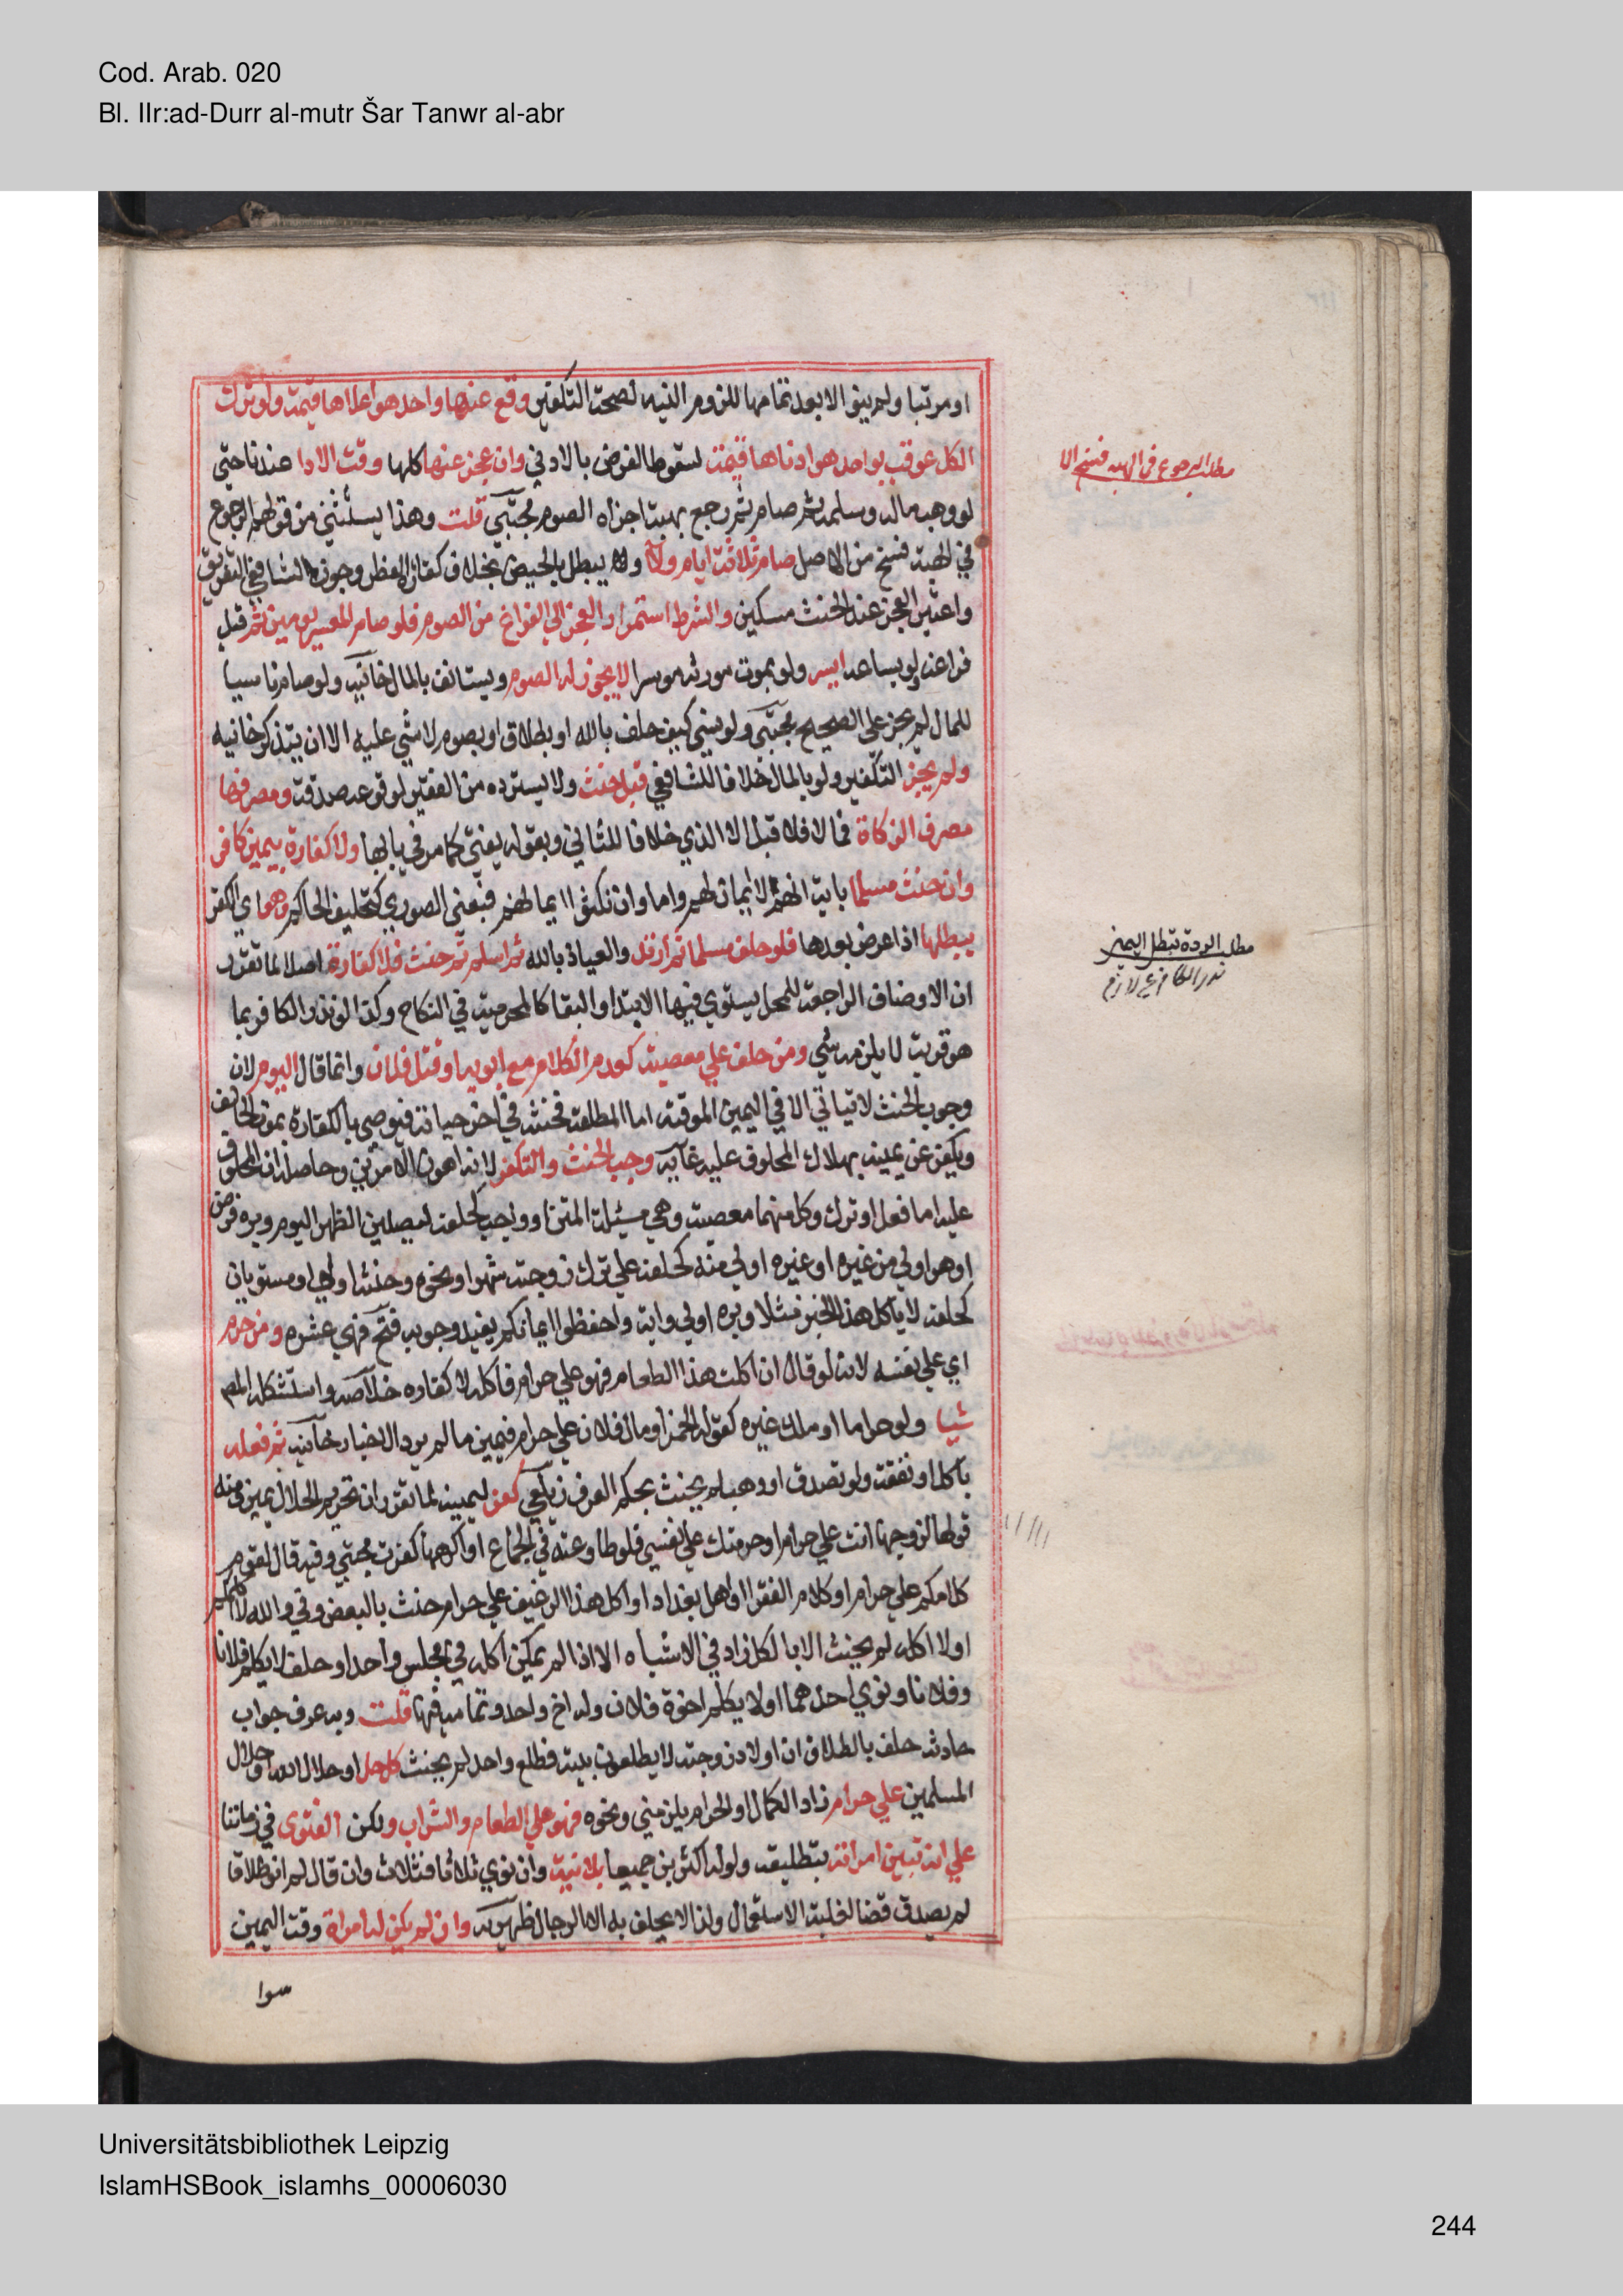 Cod. Arab. 020
Bl. IIr:ad-Durr al-mutr Šar Tanwr al-abr
او مرتبا ولم ينو الا بعد تمامها للزوم النيه لصحت التكفير وقع عنها واحد هو اعلاها قيمت ولو ترك
الكل عوقب بواحد هو ادناها قيمت لسقوط الفرض بالادني وان عجز عنها كلها وقت الادا عندنا حتي
لو وهب ماله وسلمه ثم صام ثم رجع بهبته اجزاه الصوم مجتبي قلت وهذا يستثني من قولهم الرجوع
في الهبة فسخ من الاصل صام ثلاثة ايام ولآ ولا يبطل بالحيض بخلاف كفارة الفطر وجوز الشافعي التفريق
واعتبر العجز عند الحنث مسكين والشرط استمرار العجز الي الفراغ من الصوم فلو صام المعسر يومين ثم قبل
فراغه ولو بساعه ايسر ولو بموت مورثه موسرا لا يجوز له الصوم ويستانف بالمال خانيه ولو صام ناسيا
للمال لم يجز علي الصحيح مجتبي ولو نسي كيف حلف بالله او بطلاق او بصوم لا شي عليه الا ان يتذكر خانيه
ولم يجز التكفير ولو بالمال خلافا للشافعي قبل حنث ولا يسترده من الفقير لوقوعه صدقة ومصرفها
مصرف الزكاة فما لا فلا قيل الا الذمي خلافا للثاني وبقوله يفتي كما مر في بابها ولا كفارة بيمين كافر
وان حنث مسلما باية انهم لا ايمان لهم واما وان نكثوا ايمانهم فيعني الصوري كتحليف الحاكم وهو اي الكفر
يبطلها اذا عرض بعدها فلو حلف مسلما ثم ارتد والعياذ بالله ثم اسلم ثم حنث فلا كفارة اصلا لما تقرر
ان الاوصاف الراجعة للمحل يستوي فيها الابتدا والبقا كالمحرمية في النكاح وكذا لو نذر الكافر بما
هو قربة لا يلزمه شي ومن حلف علي معصيت كعدم الكلام مع ابويه او قتل فلان وانما قال اليوم لان
وجوب الحنث لا يتاتي الا في اليمين الموقته اما المطلقة فحنثه في اخر حياته فيوصي بالكفارة بموت الحالف
ويكفر عن يمينه بهلاك المحلوف عليه غايه وجب الحنث والتكفير لانه اهون الامرين وحاصله ان المحلوف
عليه اما فعل او ترك وكل منهما معصيت وهي مسئلة المتن او واجب كحلفه ليصلين الظهر اليوم وبره فرض
او هو اولي من غيره او غيره اولي منه كحلفه علي ترك زوجته شهرا ونحوه وحنثه اولي او مستويان
كحلفه لا ياكل هذا الخبز مثلا وبره اولي واية واحفظوا ايمانكم يفيد وجوبه فتح فهي عشره ومن حرم
اي علي نفسه لانه لو قال ان اكلت هذا الطعام فهو علي حرام فاكله لا كفاره خلاصه واستشكله المص
شيا ولو حراما او ملك غيره كقوله الخمر او مال فلان علي حرام فيمين ما لم يرد الاخبار خانيه ثم فعله
باكل او نفقة ولو تصدق او وهب لم يحنث بحكم العرف زيلعي كفر ليمينه لما تقرر ان تحريم الحلال يمين ومنه
قولها لزوجها انت علي حرام او حرمتك علي نفسي فلو طاوعته في الجماع او اكرهها كفرت مجتبي وفيه قال لقوم
كلامكم علي حرام او كلام الفقرا او اهل بغداد او اكل هذا الرغيف علي حرام حنث بالبعض وفي والله لا اكلمكم
او لا اكله لم يحنث الا بالكل زاد في الاشباه الا اذا لم يمكن اكله في مجلس واحد او حلف لا يكلم فلانا
وفلانا ونوي احدهما او لا يكلم اخوة فلان وله اخ واحد وتمامه فيها قلت وبه عرف جواب
حادثه حلف بالطلاق ان اولاد زوجته لا يطلعون بيته فطلع واحد لم يحنث كل حل او حلال الله او حلال
المسلمين علي حرام زاد الكمال او الحرام يلزمني ونحوه فهو علي الطعام والشراب ولكن الفتوي في زماننا
علي انه تبين امراته بتطليقه ولو له اكثر بن جميعا بلا نية وان نوي ثلاثا فثلاث وان قال لم انو طلاقا
لم يصدق قضا لغلبة الاستعمال ولذا لا يحلف به الا الرجال ظهيريه وان لم يكن له امراة وقت اليمين
سوا
مطلب الرجوع في الهبه فسخ الا
مطلب الردة تبطل اليمين
نذر الكافر غير لازم
Universitätsbibliothek Leipzig
IslamHSBook_islamhs_00006030
244